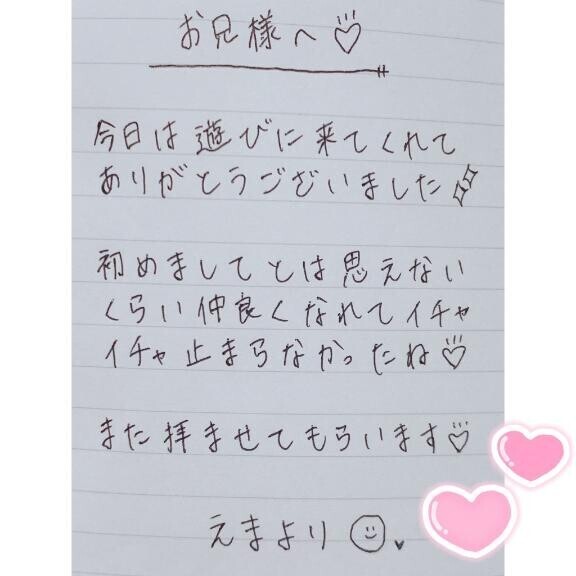 お兄様へ♡
今日は遊びに来てくれて
ありがとうございました
初めましてとは思えない
くらい仲良くなれてイチャ
イチャ止まらなかったね♡
また拝ませてもらいます♡
えまより